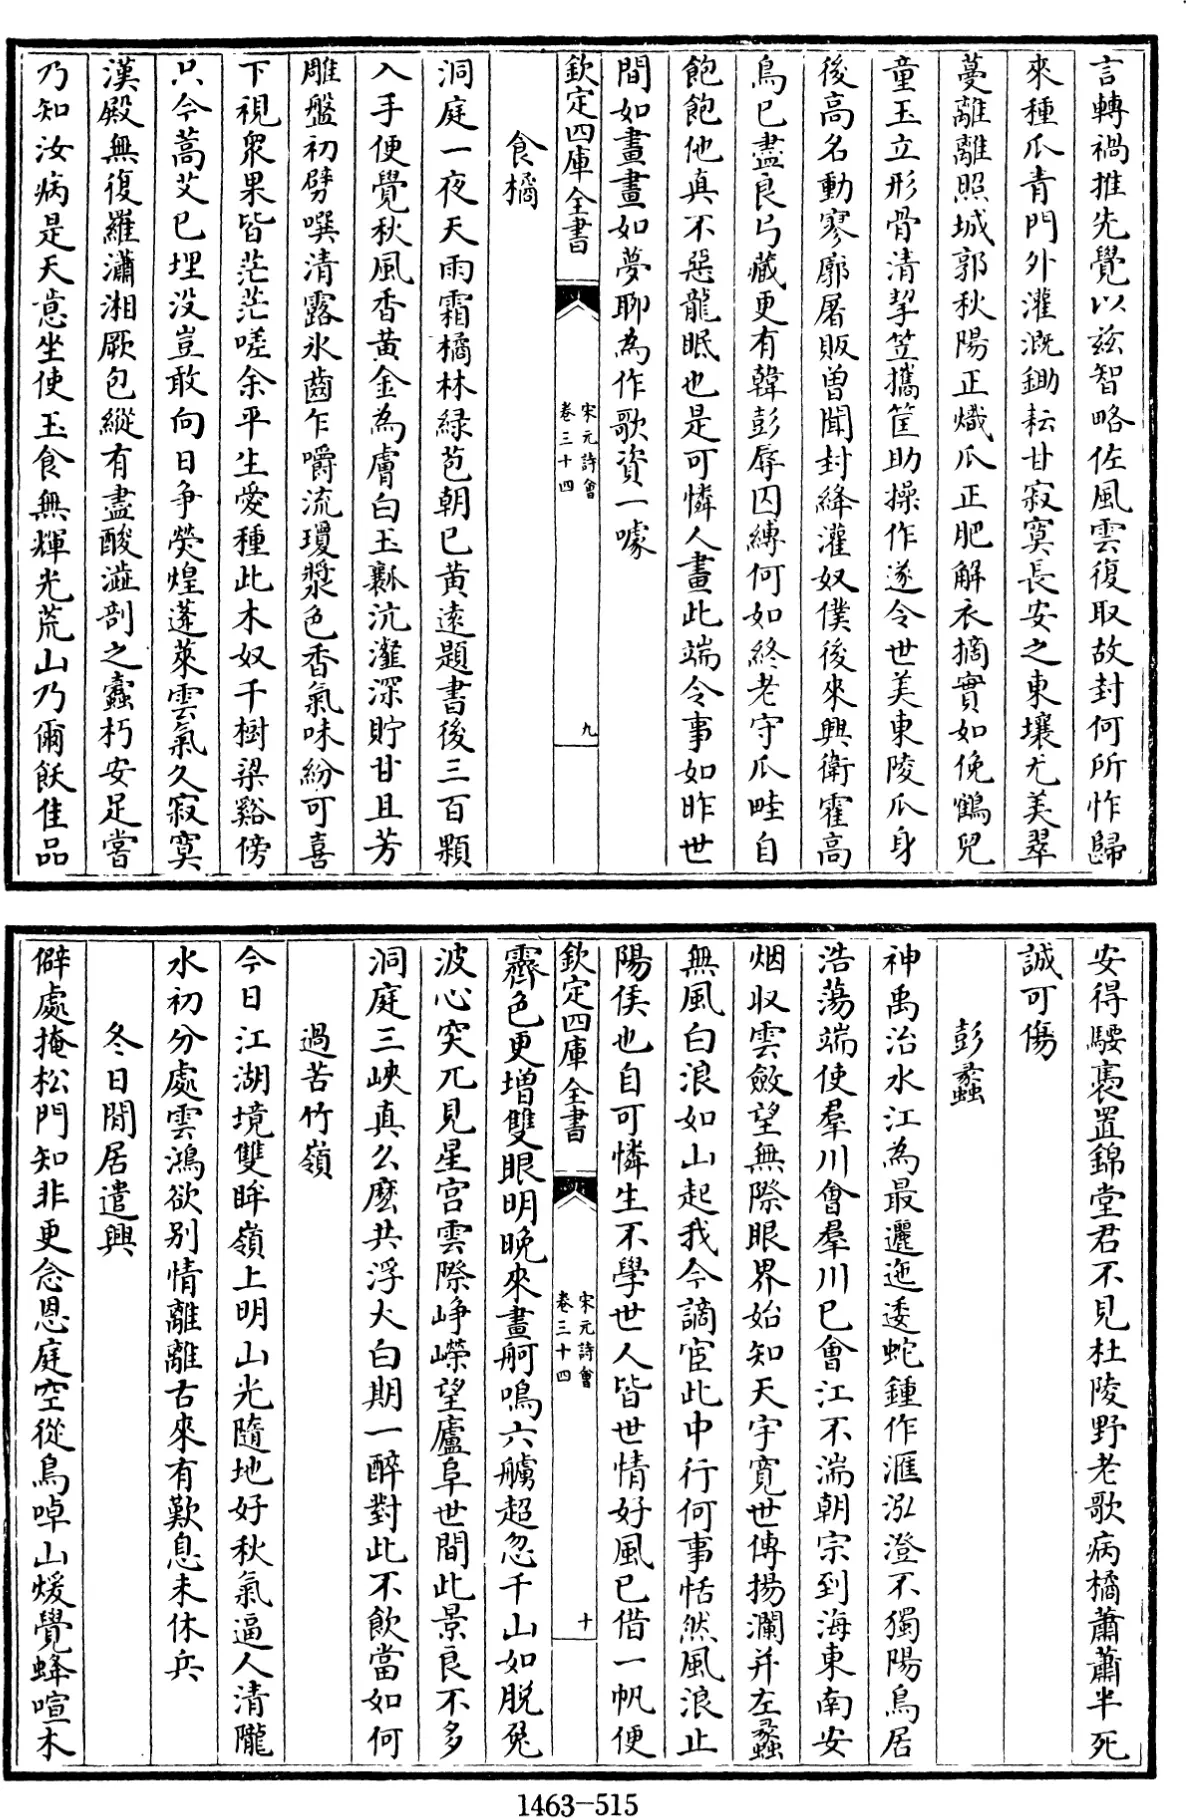 言轉禍推先覺以兹智略佐風雲復取故封何所怍歸
來種瓜青門外灌溉鋤耘甘寂寞長安之東壤尤美翠
蔓離離照城郭秋陽正熾瓜正肥解衣摘實如俛鶴兒
童玉立形骨清挈笠攜筐助操作遂令世美東陵瓜身
後高名動寥廓屠販曾聞封絳灌奴僕後來興衛霍高
鳥已盡良弓藏更有韓彭辱囚縛何如終老守瓜畦自
飽飽他真不惡龍眠也是可憐人畫此端令事如昨世
間如畫畫如夢聊為作歌資一噱
欽定四庫全書
宋元詩會
卷三十四
九
食橘
洞庭一夜天雨霜橘林綠苞朝已黄遠題書後三百顆
入手便覺秋風香黄金為膚白玉瓤沆瀣深貯甘且芳
雕盤初劈噀清露氷齒乍嚼流瓊漿色香氣味紛可喜
下視衆果皆茫茫嗟余平生愛種此木奴千樹梁谿傍
只今蒿艾已埋没豈敢向日争熒煌蓬萊雲氣久寂寞
漢殿無復羅瀟湘厥包縱有盡酸澁剖之蠧朽安足嘗
乃知汝病是天意坐使玉食無輝光荒山乃爾飫佳品
安得騕褭置錦堂君不見杜陵野老歌病橘蕭蕭半死
誠可傷
彭蠡
神禹治水江為最邐迤逶蛇鍾作滙泓澄不獨陽鳥居
浩蕩端使羣川會羣川已會江不湍朝宗到海東南安
烟収雲斂望無際眼界始知天宇寛世傳揚瀾并左蠡
無風白浪如山起我今謫宦此中行何事恬然風浪止
陽侯也自可憐生不學世人皆世情好風已借一帆便
欽定四庫全書
宋元詩會
卷三十四
十
霽色更增雙眼明晚來畫舸鳴六艣超忽千山如脱兎
波心突兀見星宫雲際崢嶸望廬阜世間此景良不多
洞庭三峽真么麽共浮大白期一醉對此不飲當如何
過苦竹嶺
今日江湖境雙眸嶺上明山光隨地好秋氣逼人清隴
水初分處雲鴻欲别情離離古來有歎息未休兵
冬日閒居遣興
僻處掩松門知非更念恩庭空從鳥啅山煖覺蜂喧木
1463-515